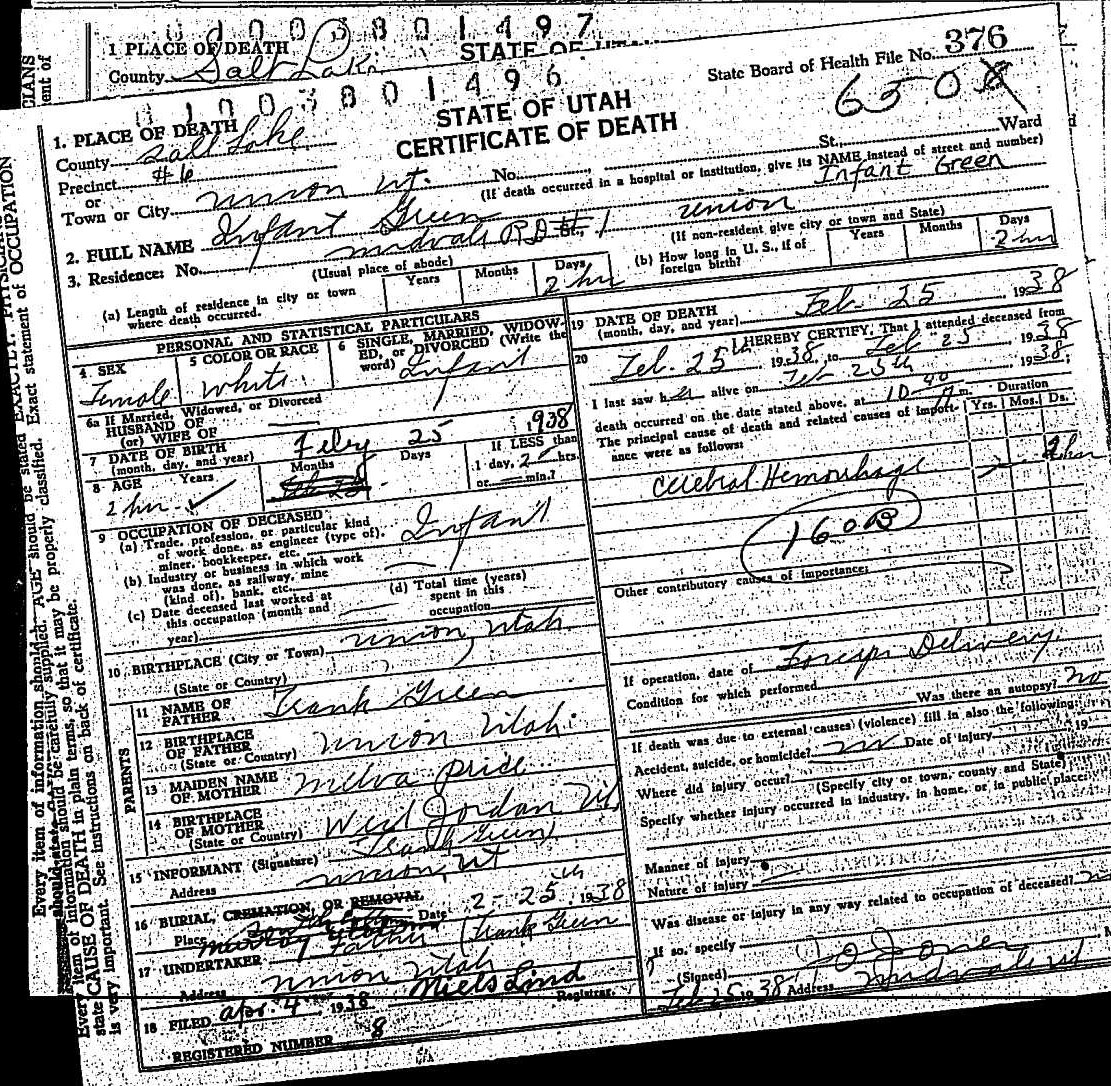 01003801497
1 PLACE OF DEATH
STATE OF UTAH
County Salt Lake
01003801496
State Board of Health File No. 376
6508
STATE OF UTAH
CERTIFICATE OF DEATH
1. PLACE OF DEATH
County Salt Lake
Precinct #6
or
Town or City Union Ut. No. St., Ward
(If death occurred in a hospital or institution, give its NAME instead of street and number)
2. FULL NAME Infant Green
Infant Green
3. Residence: No. Midvale R D #1 St., Union
(Usual place of abode)
(If non-resident give city or town and State)
(a) Length of residence in city or town where death occurred.
Years Months Days
2 hrs
(b) How long in U. S., if of foreign birth?
Years Months Days
2 hrs
PERSONAL AND STATISTICAL PARTICULARS
4 SEX
Female
5 COLOR OR RACE
White
6 SINGLE, MARRIED, WIDOWED, or DIVORCED (Write the word) Infant
6a If Married, Widowed, or Divorced
HUSBAND OF
(or) WIFE OF
7 DATE OF BIRTH
(month, day, and year) Feby 25 1938
8 AGE Years Months Days
If LESS than
1 day, 2 hrs.
or min.?
2 hrs
9 OCCUPATION OF DECEASED
(a) Trade, profession, or particular kind of work done, as engineer (type of), miner, bookkeeper, etc. Infant
(b) Industry or business in which work was done, as railway, mine (kind of), bank, etc.
(c) Date deceased last worked at this occupation (month and year)
(d) Total time (years) spent in this occupation
10 BIRTHPLACE (City or Town) Union, Utah
(State or Country)
PARENTS
11 NAME OF FATHER Frank Green
12 BIRTHPLACE OF FATHER Union Utah
(State or Country)
13 MAIDEN NAME OF MOTHER Melva Price
14 BIRTHPLACE OF MOTHER West Jordan Ut
(State or Country)
15 INFORMANT (Signature) Frank Green
Address Union, Ut
16 BURIAL, CREMATION, OR REMOVAL
Place Date 2-25th 1938
17 UNDERTAKER Father (Frank Green
Address Union Utah
18 FILED Apr. 4 1938 Niels Lind
Registrar.
REGISTERED NUMBER 8
19 DATE OF DEATH
(month, day, and year) Feb. 25 1938
20 I HEREBY CERTIFY, That I attended deceased from
Feb. 25th 1938, to Feb 25 1938
I last saw her alive on Feb 25th 1938;
death occurred on the date stated above, at 10 40 A m.
The principal cause of death and related causes of importance were as follows:
Duration
Yrs. Mos. Ds.
Cerebral Hemorrhage 2 hrs
160B
Other contributory causes of importance:
If operation, date of Forceps Delivery
Condition for which performed
Was there an autopsy? No
If death was due to external causes (violence) fill in also the following:
Accident, suicide, or homicide? no Date of injury 19
Where did injury occur?
(Specify city or town, county and State)
Specify whether injury occurred in industry, in home, or in public place:
Manner of injury
Nature of injury
Was disease or injury in any way related to occupation of deceased? no
If so, specify
(Signed)
Feb 25 1938 Address Midvale Ut
Every item of information should be carefully supplied. AGE should be stated EXACTLY. PHYSICIANS
should state CAUSE OF DEATH in plain terms, so that it may be properly classified. Exact statement of OCCUPATION
is very important. See instructions on back of certificate.